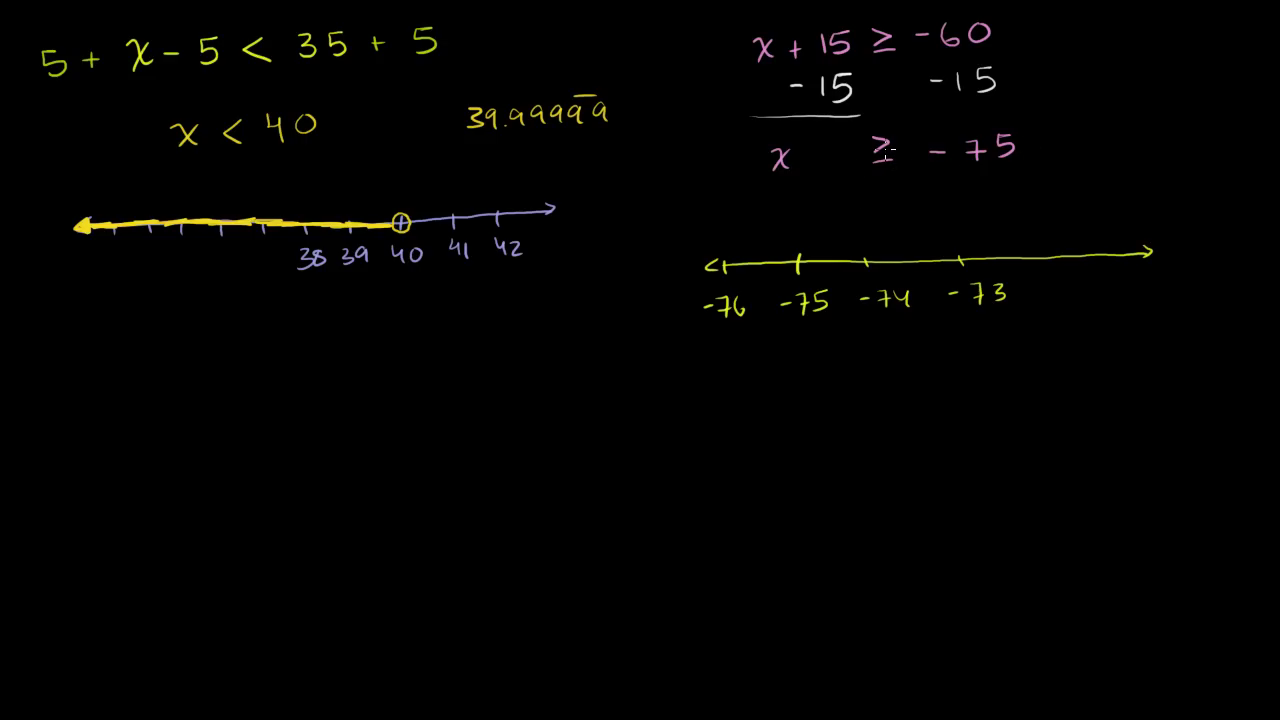 5 + x - 5 < 35 + 5
x < 40
39.9999̅9
38 39 40 41 42
x + 15 ≥ -60
-15 -15
x ≥ -75
-76 -75 -74 -73